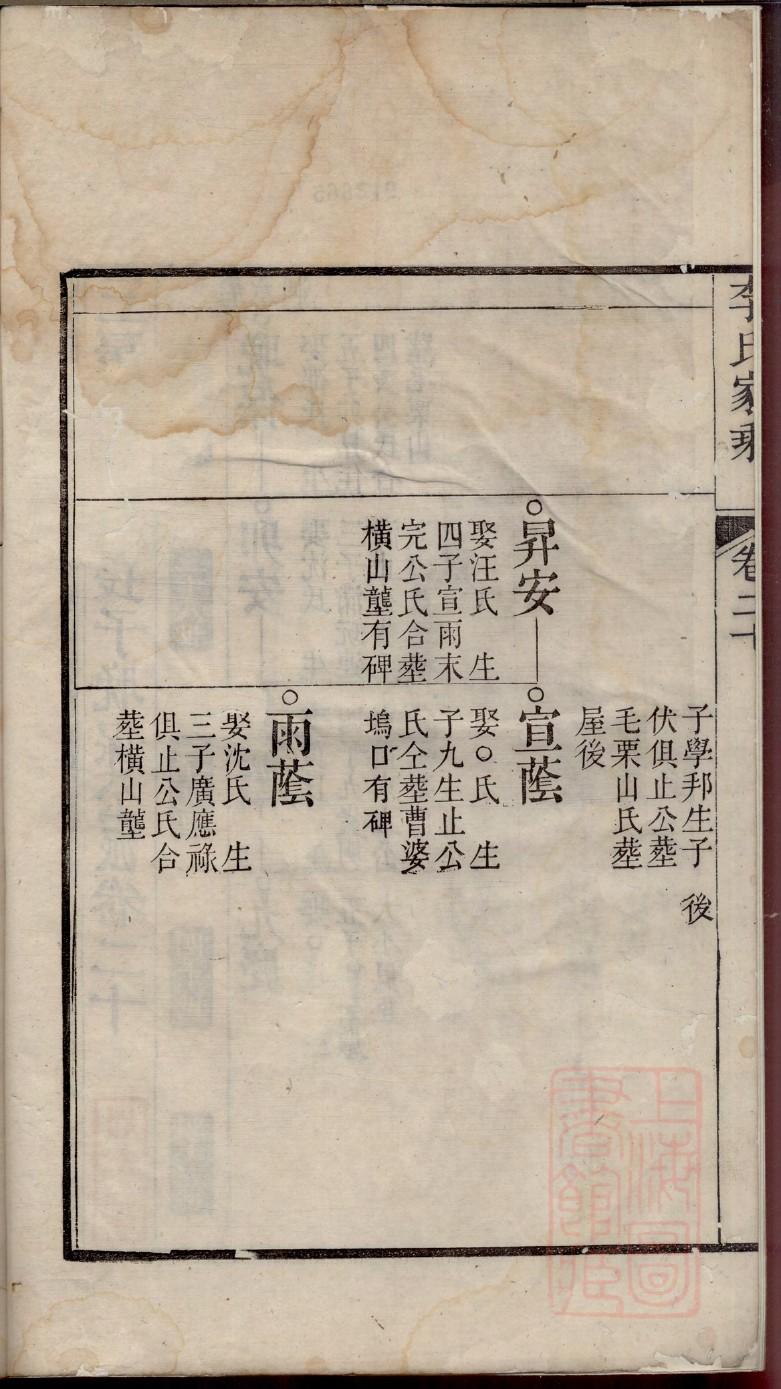 李氏家乘
卷二十
子學邦生子 後
伏俱止公塟
毛栗山氏塟
屋後
昇安
娶汪氏 生
四子宣雨末
完公氏合塟
橫山蘴有碑
宣蔭
娶○氏 生
子九生止公
氏仝塟曹婆
塢口有碑
雨蔭
娶沈氏 生
三子廣應祿
俱止公氏合
塟橫山蘴
上海圖
書館藏